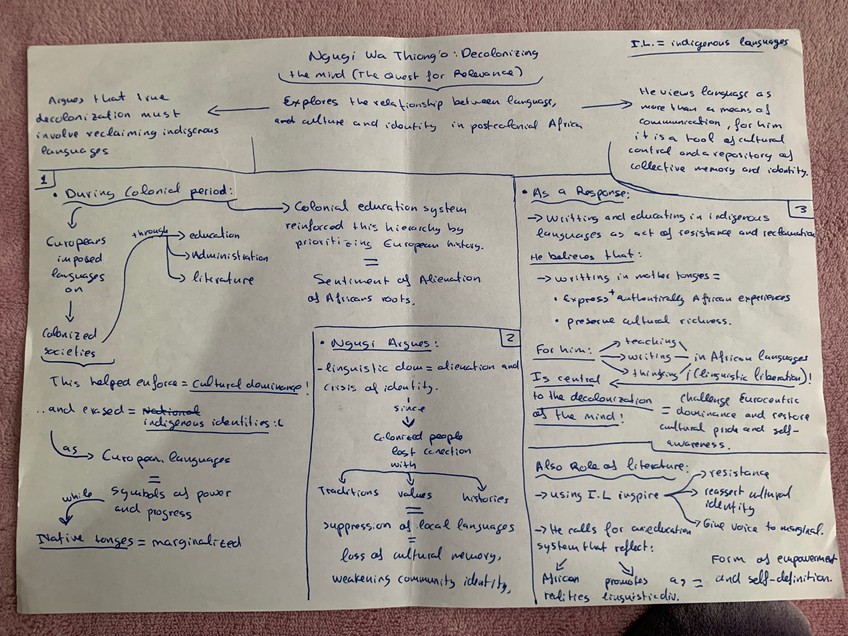 I.L. = indigenous languages
Ngugi Wa Thiong'o: Decolonizing
the mind (The Quest for Relevance)
Argues that true
decolonization must
involve reclaiming indigenous
languages
Explores the relationship between language,
and culture and identity in postcolonial Africa
He views language as
more than a means of
communication, for him
it is a tool of cultural
control and a repository of
collective memory and identity.
1
• During Colonial period:
Europeans
imposed
languages
on
Colonized
societies
through
education
Administration
literature
Colonial education system
reinforced this hierarchy by
prioritizing European history.
=
Sentiment of Alienation
of Africans roots.
This helped enforce = cultural dominance!
..and erased = National
indigenous identities :(
as
European languages
=
Symbols of power
and progress
while
Native tonges = marginalized
2
• Ngugi Argues:
- linguistic dom = alienation and
crisis of identity.
since
Colonized people
lost conection
with
Traditions values histories
=
suppression of local languages
=
loss of cultural memory,
weakening community identity,
3
• As a Response:
→ Writting and educating in indigenous
languages as act of resistance and reclamation
He believes that:
→ writting in mother tonges =
• Express + authentically African experiences
• preserve cultural richness.
For him:
teaching
writing
thinking
in African languages
(linguistic liberation)!
Is central
to the decolonization
of the mind!
= challenge Eurocentric
dominance and restore
cultural pride and self-
awareness.
Also Role of literature:
→ using I.L inspire
resistance
reassert cultural
identity
Give voice to marginal.
→ He calls for an education
system that reflect:
African
realities
promotes
linguistic div.
as = Form of empowerment
and self-definition.